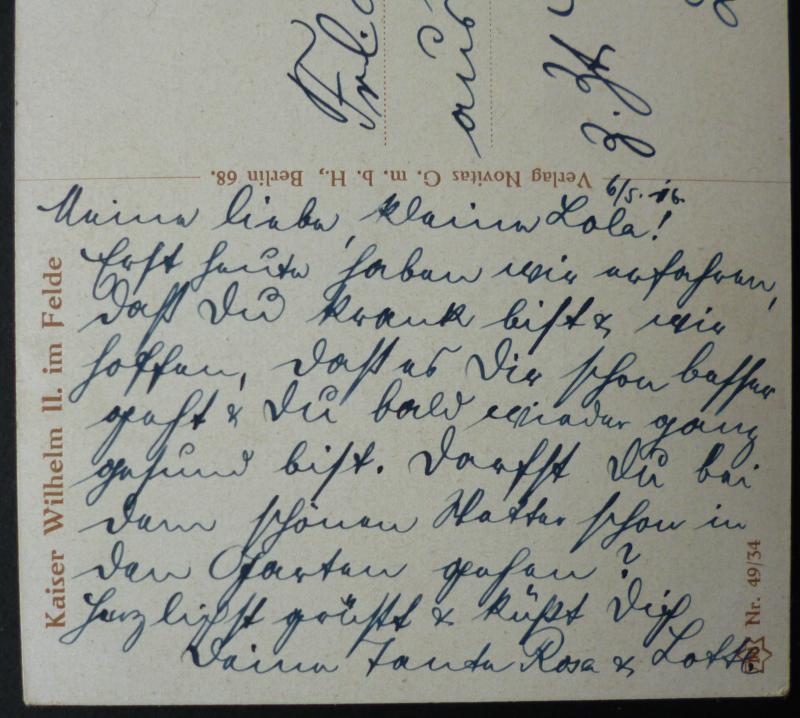 Frl.
aus
z. Zt.
Verlag Novitas G. m. b. H., Berlin 68.
6/5. 16.
Meine liebe, kleine Lola!
Erst heute haben wir erfahren,
daß Du krank bist & wir
hoffen, daß es Dir schon besser
geht & Du bald wieder ganz
gesund bist. Darfst Du bei
dem schönen Wetter schon in
den Garten gehen?
Herzlichst grüßt & küßt Dich
Deine Tante Rosa & Lotte.
Kaiser Wilhelm II. im Felde
Nr. 49/34